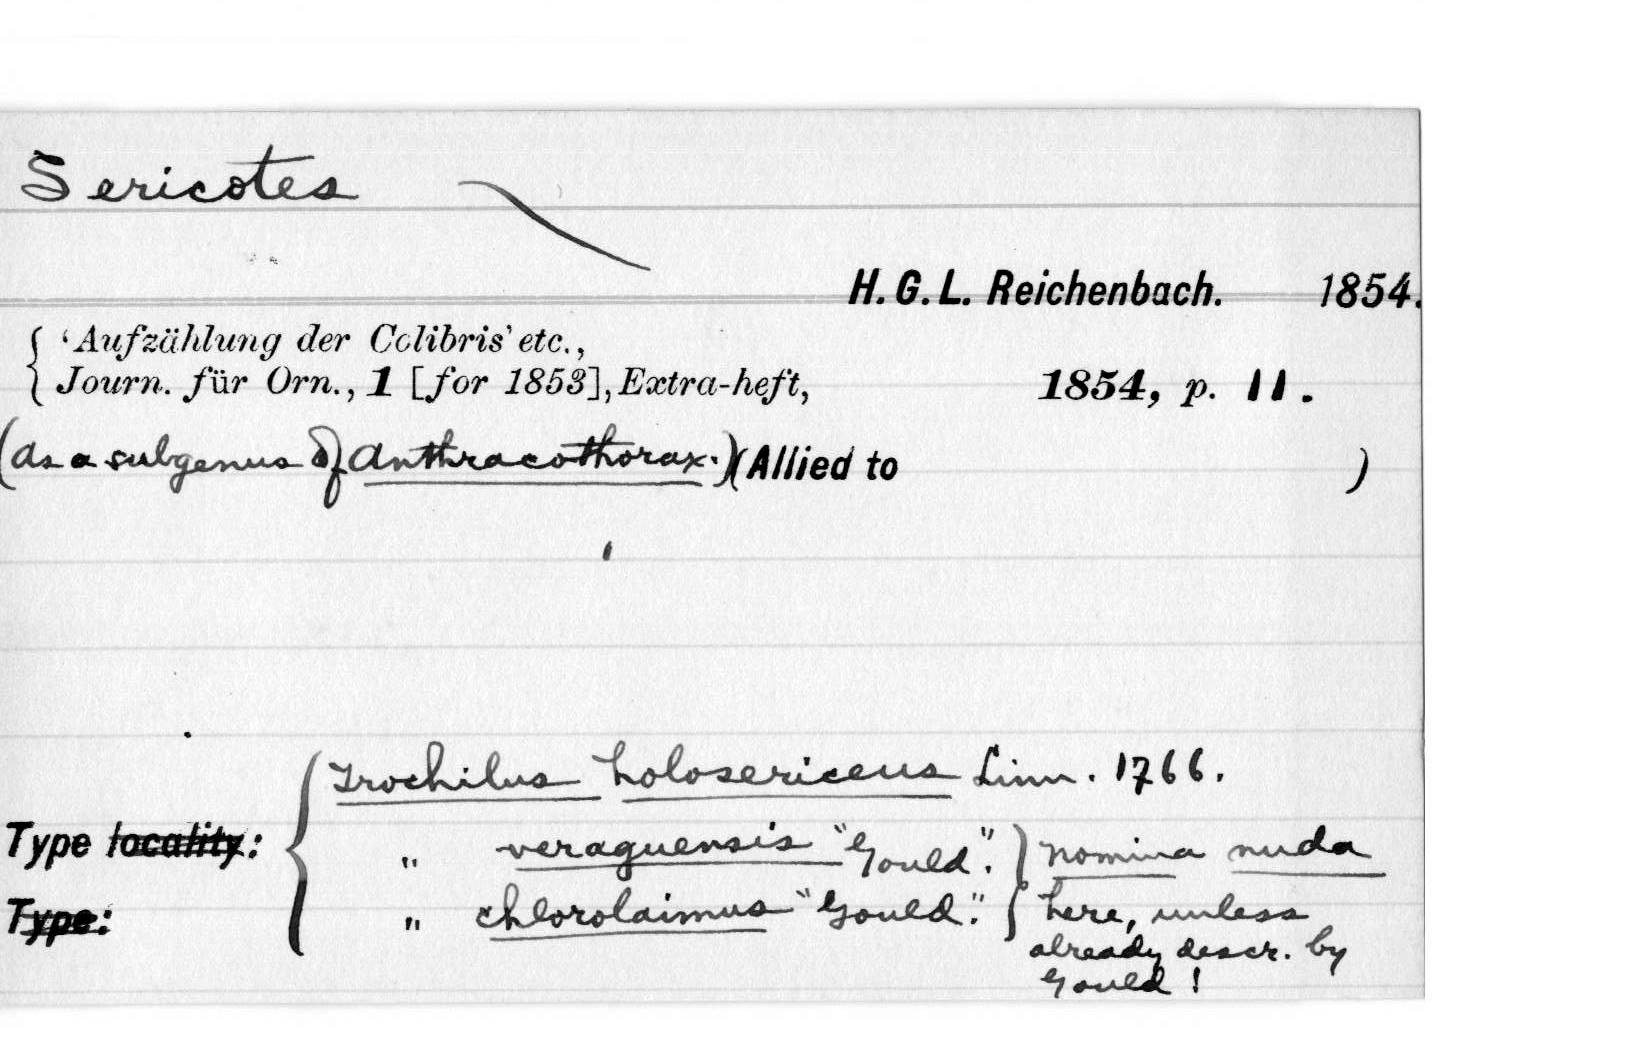 Sericotes
H. G. L. Reichenbach. 1854.
'Aufzählung der Colibris' etc.,
Journ. für Orn., 1 [for 1853], Extra-heft, 1854, p. 11.
(As a subgenus of Anthracothorax.) (Allied to )
Trochilus holosericeus Linn. 1766.
Type locality: " veraguensis "Gould". nomina nuda
Type: " chlorolaimus "Gould". here, unless
already descr. by
Gould!